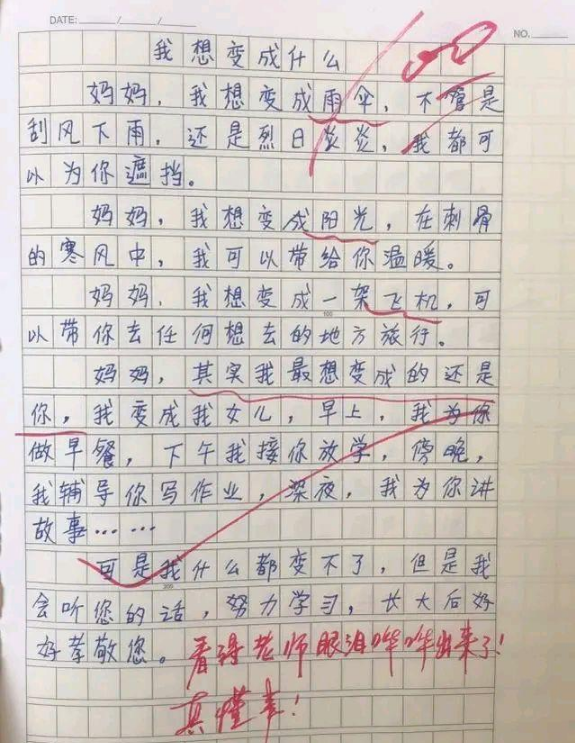 DATE: / /
NO.
我想变成什么
妈妈，我想变成雨伞，不管是
刮风下雨，还是烈日炎炎，我都可
以为你遮挡。
妈妈，我想变成阳光，在刺骨
的寒风中，我可以带给你温暖。
妈妈，我想变成一架飞机，可
以带你去任何想去的地方旅行。
妈妈，其实我最想变成的还是
你，我变成我女儿，早上，我为你
做早餐，下午我接你放学，傍晚，
我辅导你写作业，深夜，我为你讲
故事……
可是我什么都变不了，但是我
会听您的话，努力学习，长大后好
好孝敬您。看得老师眼泪哗哗出来了！
真懂事！